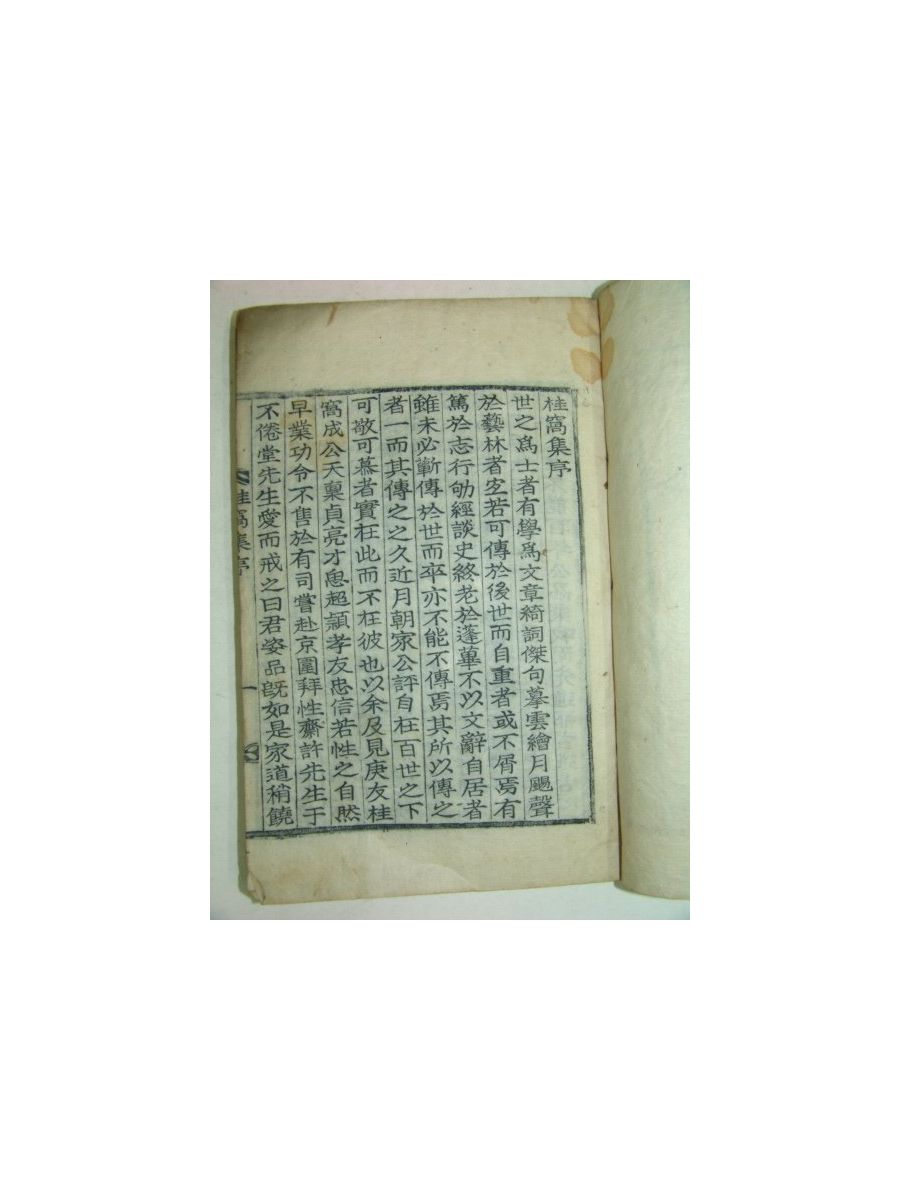 桂窩集序
世之爲士者有學爲文章綺詞傑句摹雲繪月颺聲
於藝林者宐若可傳於後世而自重者或不屑焉有
篤於志行劬經談史終老於蓬蓽不以文辭自居者
雖未必蘄傳於世而卒亦不能不傳焉其所以傳之
者一而其傳之之久近月朝家公評自在百世之下
可敬可慕者實在此而不在彼也以余及見庚友桂
窩成公天稟貞亮才思超頴孝友忠信若性之自然
早業功令不售於有司嘗赴京圍拜性齋許先生于
不倦堂先生愛而戒之曰君姿品旣如是家道稍饒
桂窩集序
一